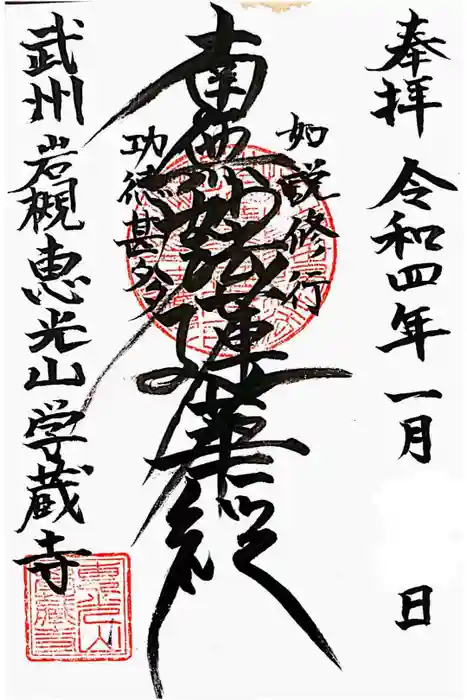 奉拝 令和四年一月 日
如説修行
南無妙法蓮華経
功徳甚多
武州岩槻恵光山学蔵寺